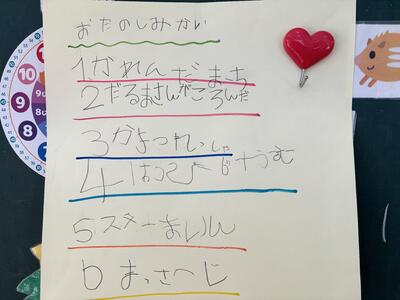 おたのしみかい
1かれんだまち
2だるまさんがころんだ
3かもつれっしゃ
4はっぴーじゃむ
5スターまいん
6まっさーじ
10
9
8